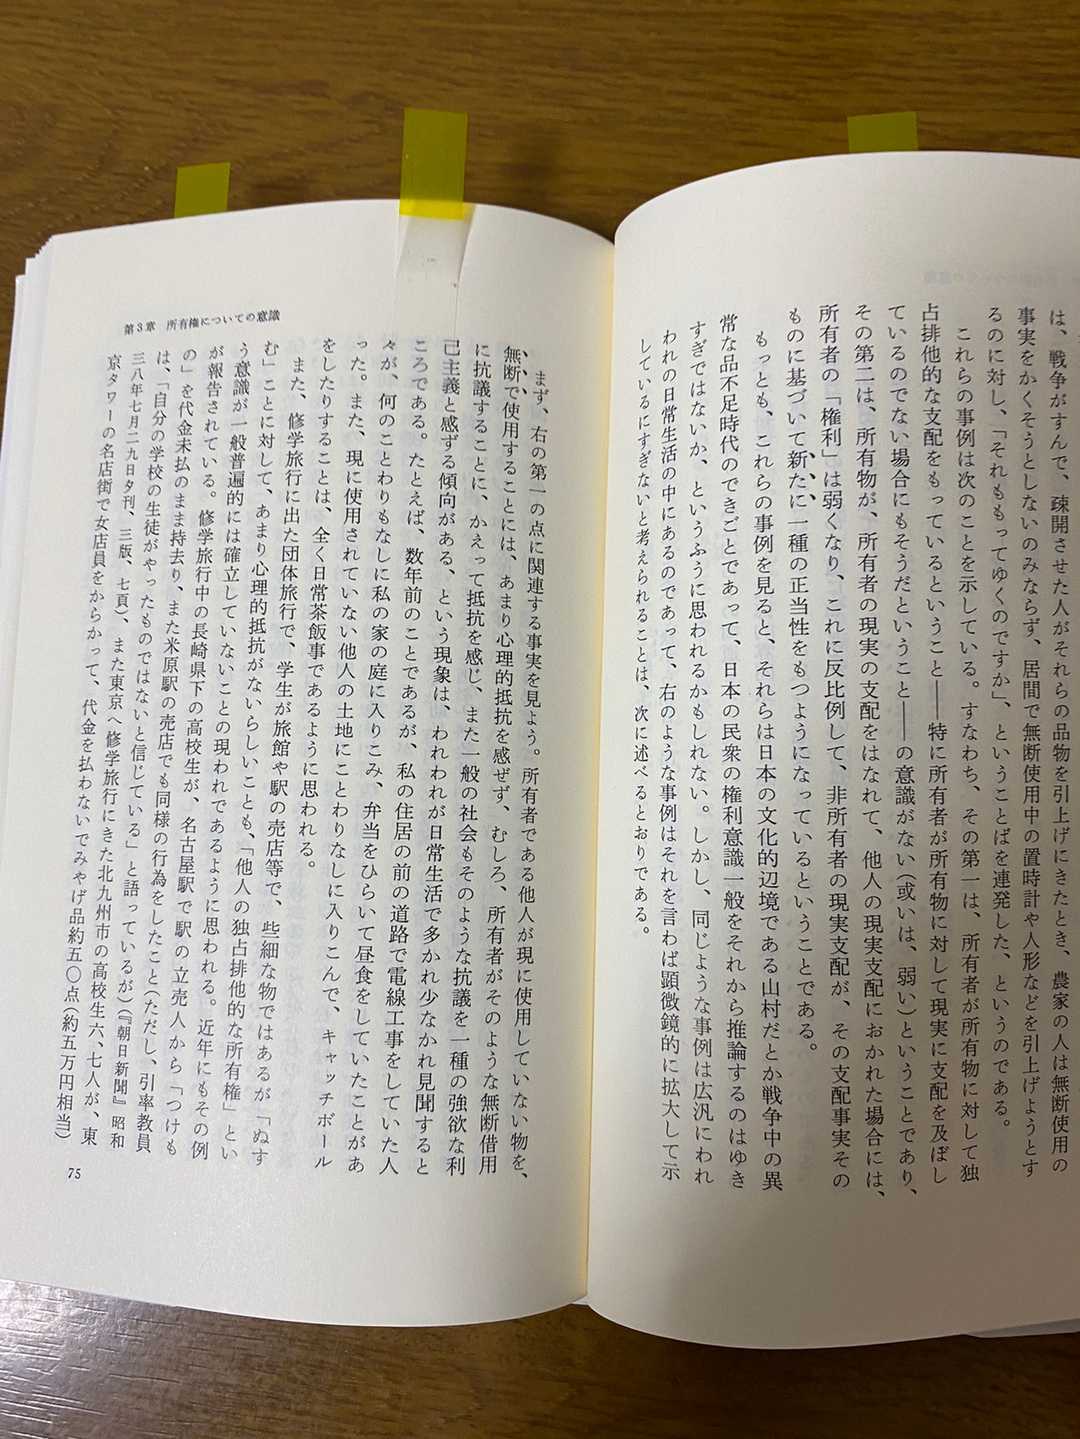 は、戦争がすんで、疎開させた人がそれらの品物を引上げにきたとき、農家の人は無断使用の
事実をかくそうとしないのみならず、居間で無断使用中の置時計や人形などを引上げようとす
るのに対し、「それももってゆくのですか」、ということばを連発した、というのである。
これらの事例は次のことを示している。すなわち、その第一は、所有者が所有物に対して独
占排他的な支配をもっているということ――特に所有者が所有物に対して現実に支配を及ぼし
ているのでない場合にもそうだということ――の意識がない(或いは、弱い)ということであり、
その第二は、所有物が、所有者の現実の支配をはなれて、他人の現実支配におかれた場合には、
所有者の「権利」は弱くなり、これに反比例して、非所有者の現実支配が、その支配事実その
ものに基づいて新たに一種の正当性をもつようになっているということである。
もっとも、これらの事例を見ると、それらは日本の文化的辺境である山村だとか戦争中の異
常な品不足時代のできごとであって、日本の民衆の権利意識一般をそれから推論するのはゆき
すぎではないか、というふうに思われるかもしれない。しかし、同じような事例は広汎にわれ
われの日常生活の中にあるのであって、右のような事例はそれを言わば顕微鏡的に拡大して示
しているにすぎないと考えられることは、次に述べるとおりである。
第3章 所有権についての意識
まず、右の第一の点に関連する事実を見よう。所有者である他人が現に使用していない物を、
無断で使用することには、あまり心理的抵抗を感ぜず、むしろ、所有者がそのような無断借用
に抗議することに、かえって抵抗を感じ、また一般の社会もそのような抗議を一種の強欲な利
己主義と感ずる傾向がある、という現象は、われわれが日常生活で多かれ少なかれ見聞すると
ころである。たとえば、数年前のことであるが、私の住居の前の道路で電線工事をしていた人
々が、何のことわりもなしに私の家の庭に入りこみ、弁当をひらいて昼食をしていたことがあ
った。また、現に使用されていない他人の土地にことわりなしに入りこんで、キャッチボール
をしたりすることは、全く日常茶飯事であるように思われる。
また、修学旅行に出た団体旅行で、学生が旅館や駅の売店等で、些細な物ではあるが「ぬす
む」ことに対して、あまり心理的抵抗がないらしいことも、「他人の独占排他的な所有権」とい
う意識が一般普遍的には確立していないことの現われであるように思われる。近年にもその例
が報告されている。修学旅行中の長崎県下の高校生が、名古屋駅で駅の立売人から「つけも
の」を代金未払のまま持去り、また米原駅の売店でも同様の行為をしたこと(ただし、引率教員
は、「自分の学校の生徒がやったものではないと信じている」と語っているが)(『朝日新聞』昭和
三八年七月二九日夕刊、三版、七頁)、また東京へ修学旅行にきた北九州市の高校生六、七人が、東
京タワーの名店街で女店員をからかって、代金を払わないでみやげ品約五〇点(約五万円相当)
75